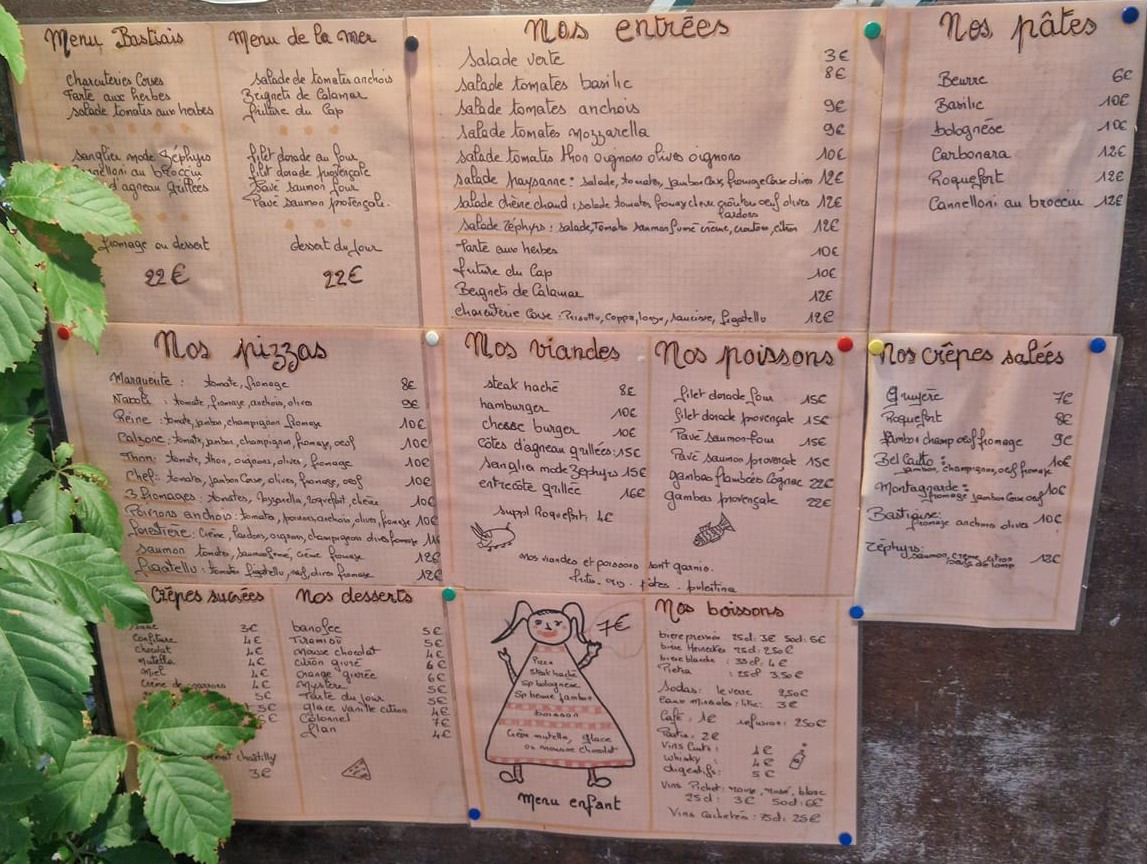 Menu Bastiais
charcuteries Corses
Tarte aux herbes
salade tomates aux herbes
sanglier mode Zéphyrs
au broccin
d'agneau grillées
fromage ou dessert
22€
Menu de la mer
salade de tomates anchois
Beignets de Calamar
friture du Cap
filet dorade au four
filet dorade provençale
Pavé saumon four
Pavé saumon provençale.
dessert du jour
22€
Nos entrées
Salade verte 3€
salade tomates basilic 8€
salade tomates anchois 9€
salade tomates mozzarella 9€
salade tomates thon oignons olives oignons 10€
salade paysanne : salade, tomates, jambon Corse, fromage Corse olives 12€
salade chèvre chaud : salade tomates fromage chèvre croûton oeuf olives 12€
lardons
salade Zéphyrs : salade, Tomates saumon fumé crème, croutons, citron 12€
Tarte aux herbes 10€
friture du Cap 10€
Beignets de Calamar 12€
charcuterie Corse : Prisuttu, coppa, lonzu, saucisse, figatellu 12€
Nos pâtes
Beurre 6€
Basilic 10€
bolognèse 10€
Carbonara 12€
Roquefort 12€
Cannelloni au broccin 12€
Nos pizzas
Marguerite : tomate, fromage 8€
Napoli : tomate, fromage, anchois, olives 9€
Reine : tomate, jambon, champignon fromage 10€
Calzone : tomate, jambon, champignon fromage, oeuf 10€
Thon : tomate, thon, oignons, olives, fromage 10€
Chef : tomate, jambon Corse, olives, fromage, oeuf 10€
3 fromages : tomates, Mozzarella, roquefort, chèvre 10€
Poivrons anchois : tomates, poivrons, anchois, olives, fromage 10€
forestière : crème, lardons, oignons, champignons olives fromage
saumon tomate, saumon fumé, crème fromage 12€
figatellu : tomates figatellu, oeuf, olives fromage 12€
Nos viandes
steak haché 8€
hamburger 10€
cheese burger 10€
côtes d'agneau grillées : 15€
sanglier mode Zéphyrs 15€
entrecôte grillée 16€
suppl Roquefort : 4€
Nos poissons
filet dorade four 15€
filet dorade provençale 15€
Pavé saumon four 15€
Pavé saumon provençale 15€
gambas flambées Cognac 22€
gambas provençale 22€
Nos viandes et poissons sont garnis.
frites . riz . pâtes . pulentina
Nos crêpes salées
gruyère 7€
Roquefort 8€
jambon champ oeuf fromage 9€
Bel Canto : 10€
jambon, champignons, oeuf fromage
Montagnarde : 10€
fromage jambon Corse oeuf
Bastiaise : 10€
fromage anchois olives
Zéphyrs : 12€
saumon, crème, citron
oeufs de lump
Crêpes sucrées
3€
confiture 4€
chocolat 4€
nutella 4€
miel 4€
crème de marrons 4€
5€
6€
chantilly
3€
Nos desserts
banofee 5€
Tiramisù 5€
mousse chocolat 4€
citron givré 6€
orange givrée 6€
mystère 5€
Tarte du jour 5€
glace vanille citron 4€
Colonnel 7€
flan 4€
7€
Pizza
Steak haché
Sp bolognese
Sp beurre jambon
boisson
Crêpe nutella, glace
ou mousse chocolat
Menu enfant
Nos boissons
biere pression 25cl : 3€ 50cl : 6€
biere Heineken 25cl : 2,50€
biere blanche : 33cl, 4€
Pietra : 25cl 3,50€
Sodas : le verre 2,50€
eaux minerales : litre : 3€
Café : 1€ infusion : 2,50€
Pastis : 2€
Vins Cuits : 1€
whisky : 4€
digestifs : 5€
Vins Pichet : rouge, rosé, blanc
25cl : 3€ 50cl : 6€
Vins Cachetés : 75cl : 25€